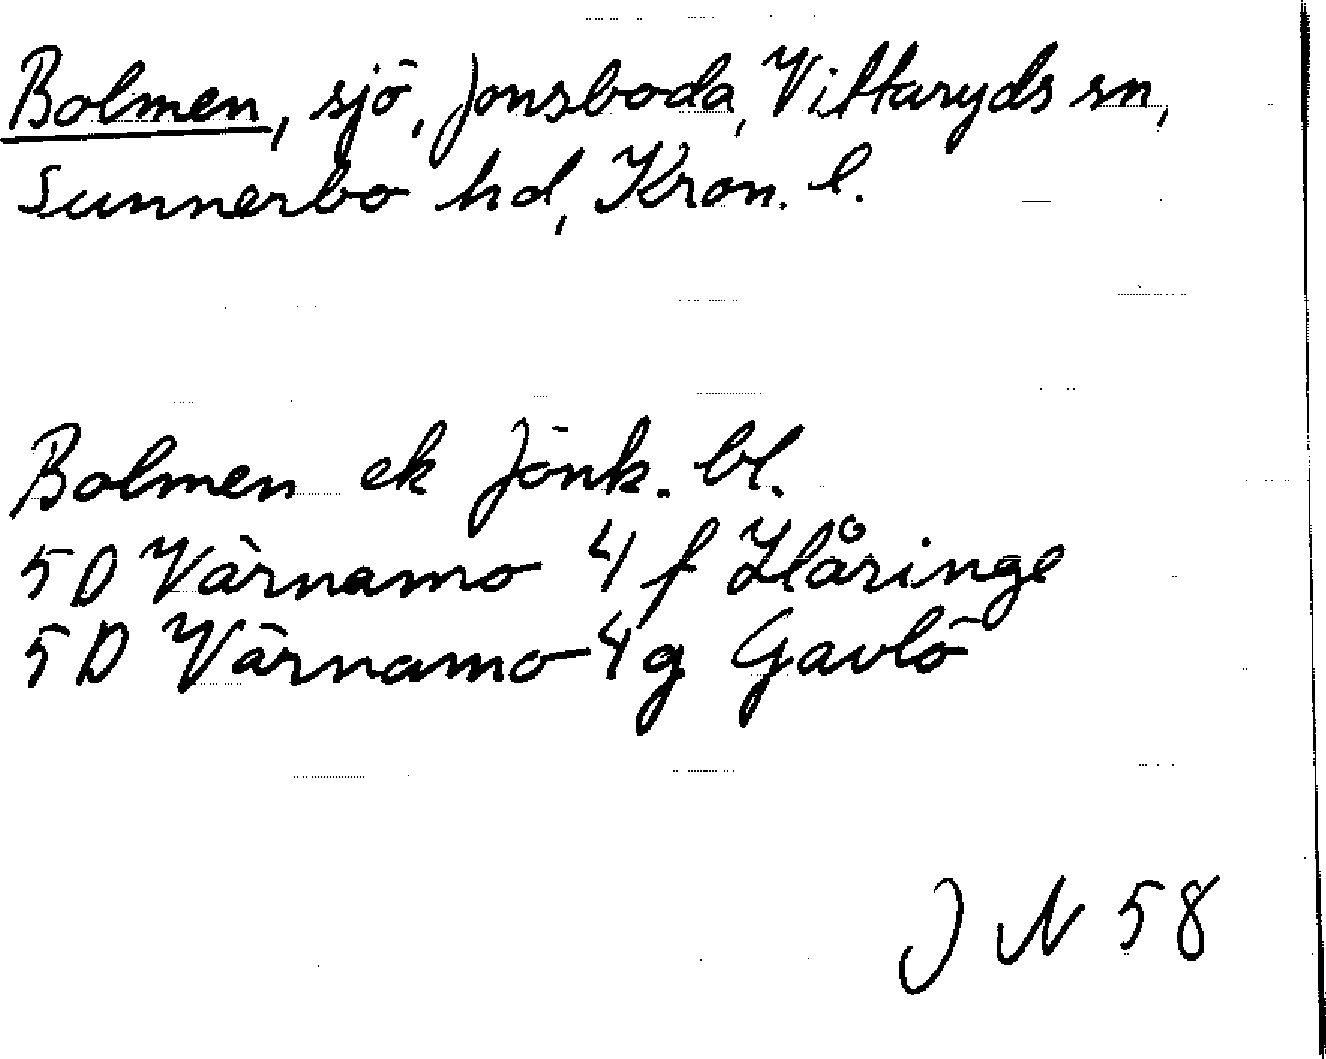 Bolmen, sjö, Jonsboda, Vittaryds sn,
Sunnerbo hd, Kron. l.
Bolmen ek Jönk. bl.
5D Värnamo 4 f Håringe
5D Värnamo 4g Gavlö
J N 58